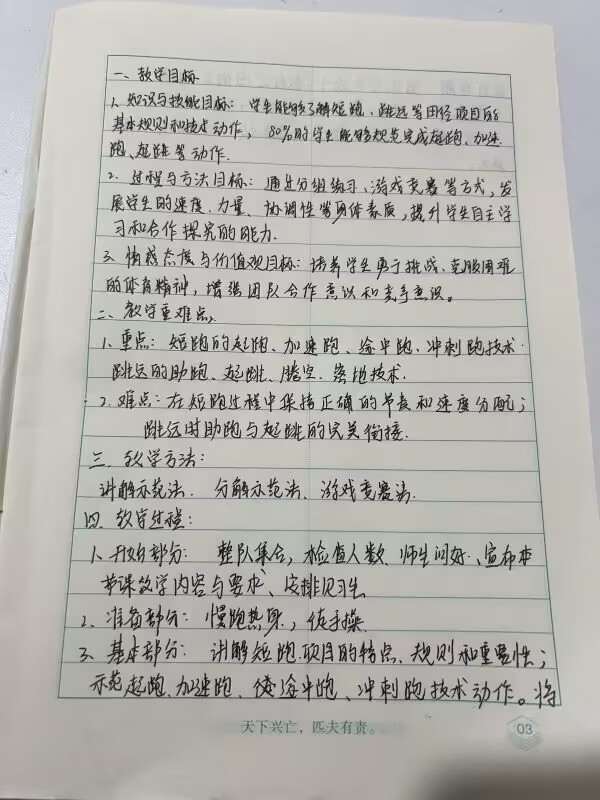 一、教学目标
1. 知识与技能目标：学生能够了解短跑、跳远等田径项目的
基本规则和技术动作，80%的学生能够规范完成起跑、加速
跑、起跳等动作.
2. 过程与方法目标：通过分组练习、游戏竞赛等方式，发
展学生的速度、力量、协调性等身体素质，提升学生自主学
习和合作探究的能力.
3. 情感态度与价值观目标：培养学生勇于挑战、克服困难
的体育精神，增强团队合作意识和竞争意识。
二、教学重难点
1. 重点：短跑的起跑、加速跑、途中跑、冲刺跑技术.
跳远的助跑、起跳、腾空、落地技术.
2. 难点：在短跑过程中保持正确的节奏和速度分配；
跳远时助跑与起跳的完美衔接.
三、教学方法：
讲解示范法、分解示范法、游戏竞赛法
四、教学过程：
1. 开始部分：整队集合，检查人数、师生问好、宣布本
节课教学内容与要求、安排见习生
2. 准备部分：慢跑热身，徒手操
3. 基本部分：讲解短跑项目的特点、规则和重要性；
示范起跑、加速跑、途中跑、冲刺跑技术动作。将
天下兴亡，匹夫有责。
03